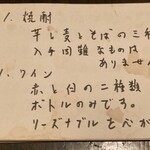 1. 焼酎
芋と麦とそばの三種
入手困難なものは
ありません
1. ワイン
赤と白の二種類
ボトルのみです。
リーズナブルをベが